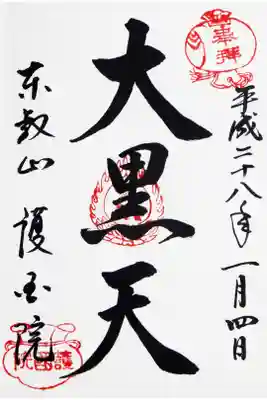 奉拝
平成二十八年一月四日
大黒天
東叡山 護国院
護國院